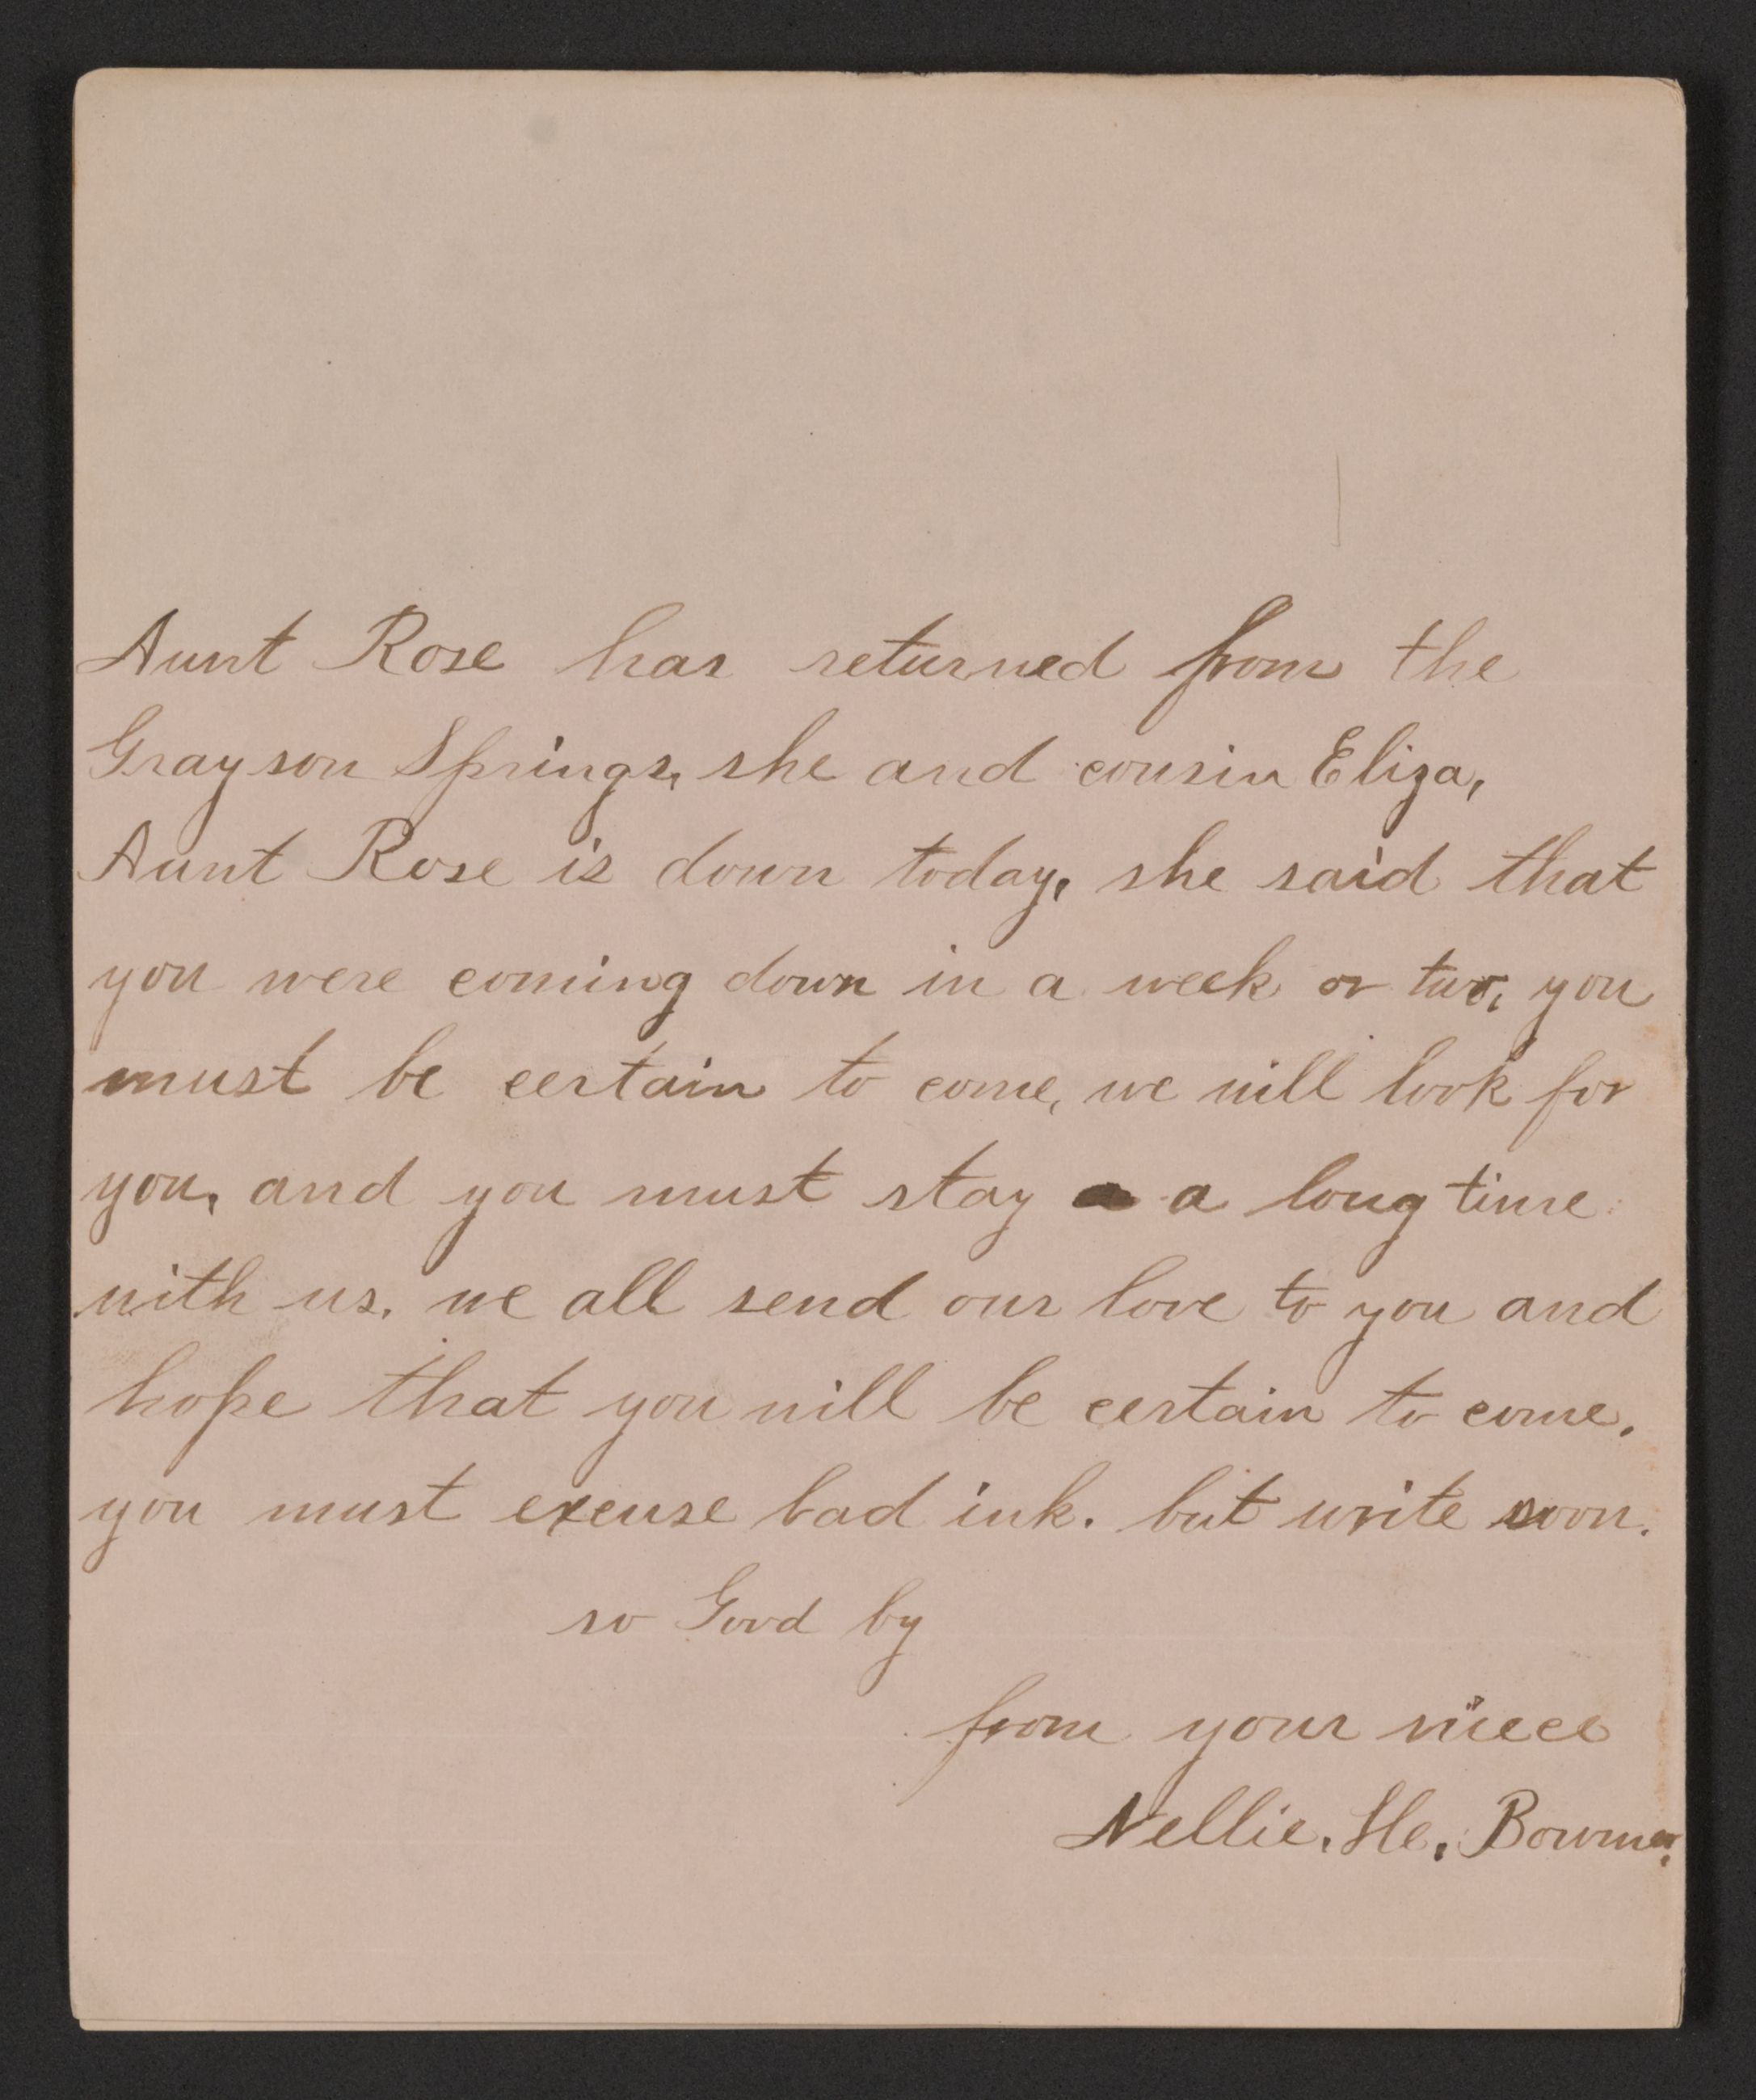 Aunt Rose has returned from the
Grayson Springs, she and cousin Eliza,
Aunt Rose is down today, she said that
you were coming down in a week or two, you
must be certain to come, we will look for
you, and you must stay a a long time
with us. we all send our love to you and
hope that you will be certain to come.
you must excuse bad ink. but write soon.
so Good by
from your niece
Nellie. He. Bowmer.